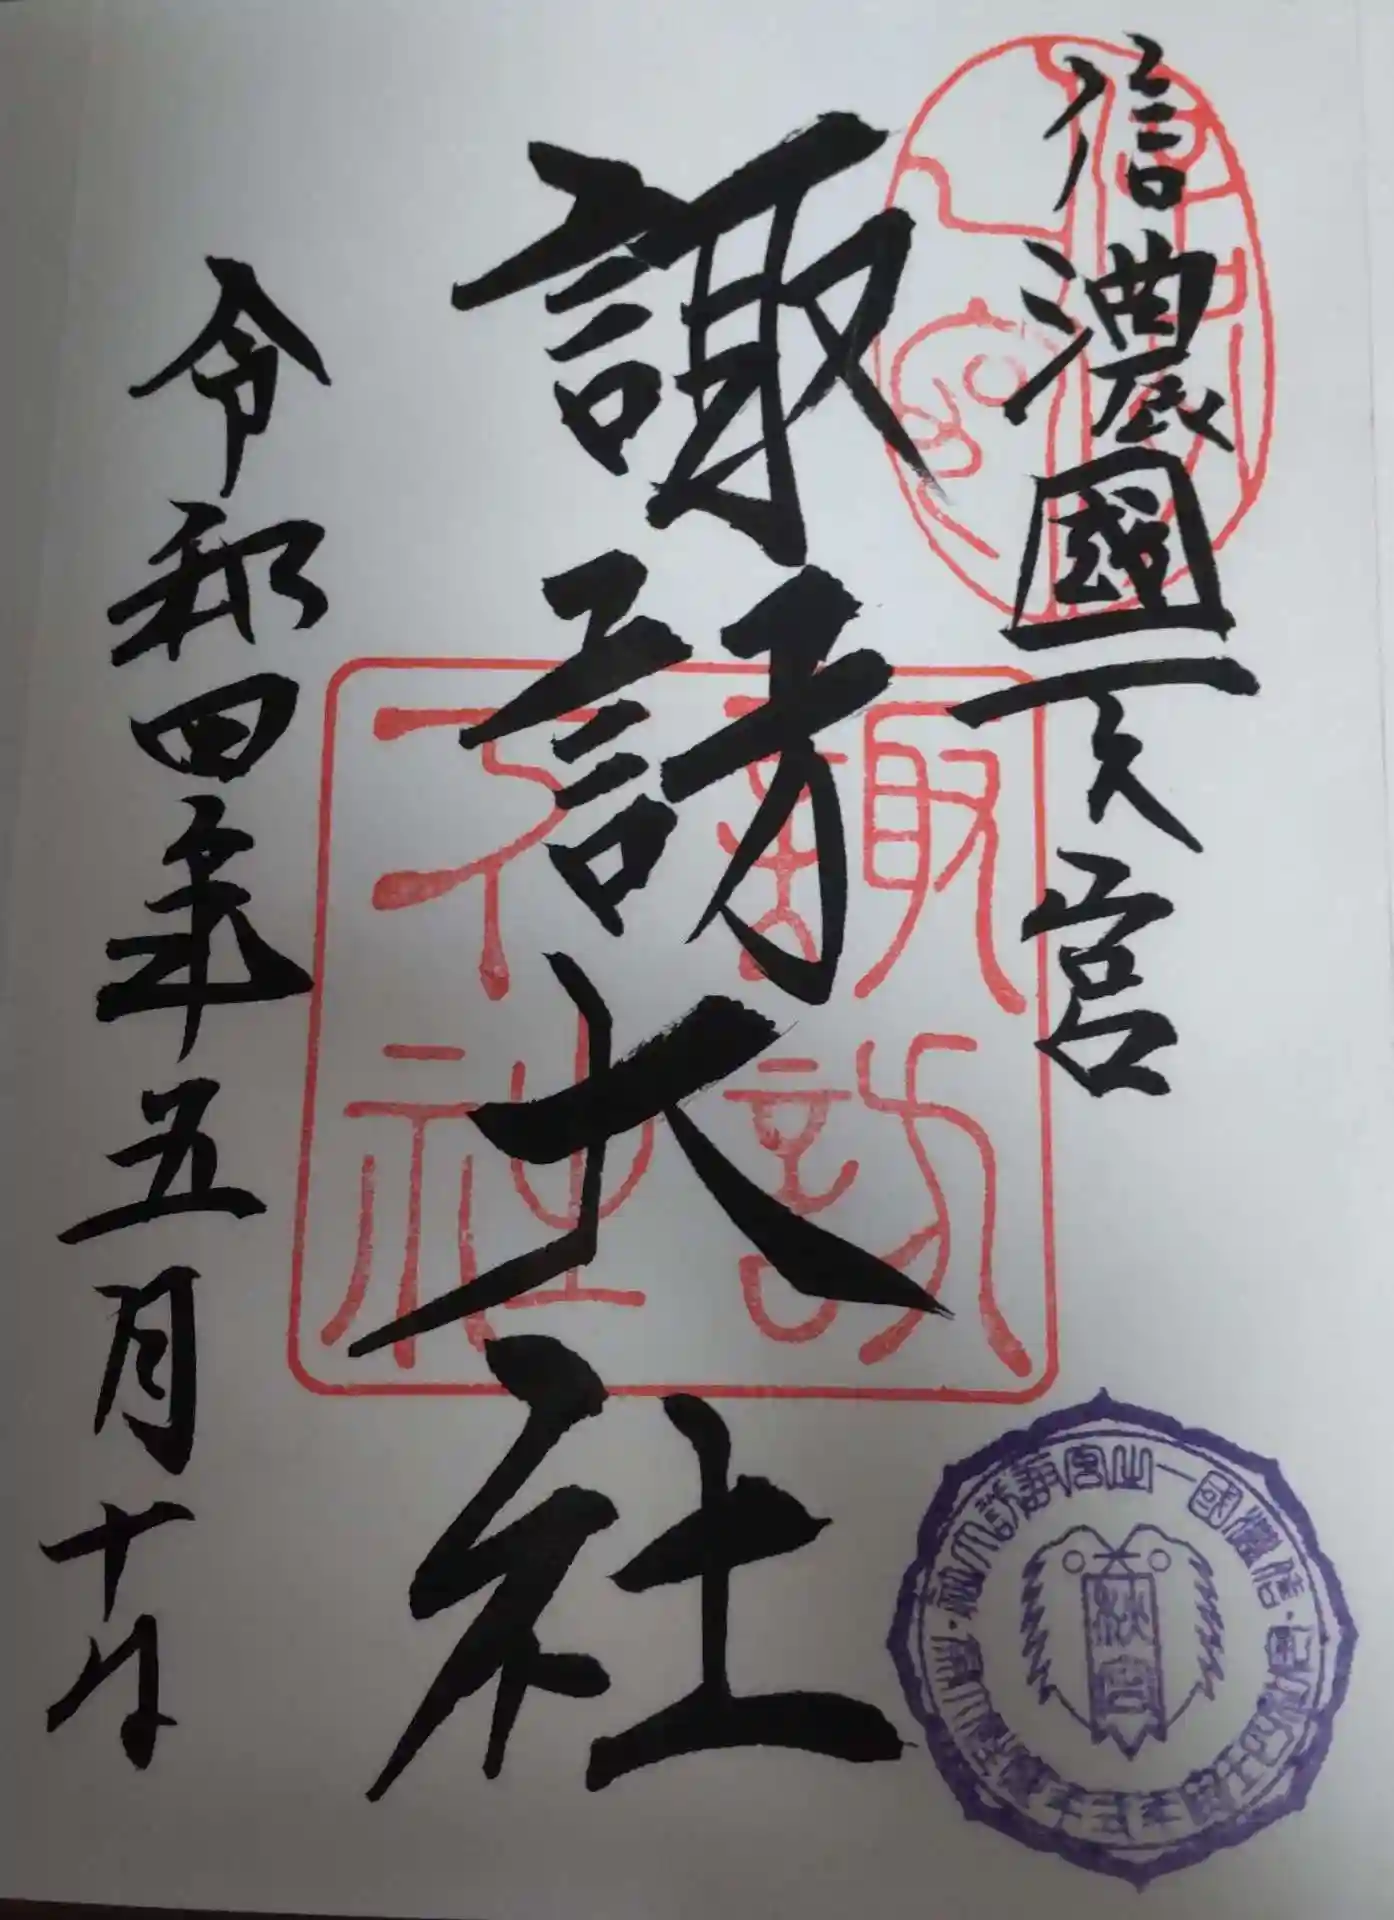 信濃國一之宮
諏訪大社
令和四年五月十日
諏訪
下社
信濃國一之宮諏訪大社
秋宮